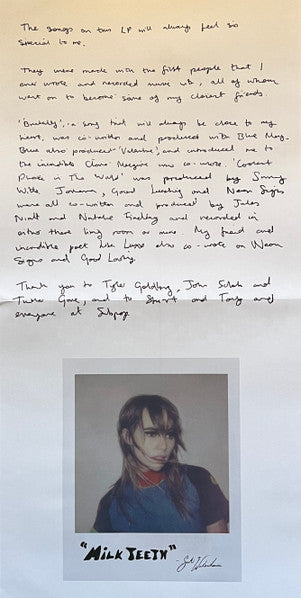 The songs on this LP will always feel so
special to me.
They were made with the first people that I
ever wrote and recorded music with, all of whom
went on to become some of my closest friends.
a song that will always be close to my
heart, was co-written and produced with Blue May.
Blue also produced 'Valentine', and introduced me to
the incredible who co-wrote. 'Coolest
Place in The World' was produced by Sonny
Good Looking and Neon Signs
were all co-written and produced by Jules
and Natalie Findlay and recorded in
either there living room or mine. My friend and
incredible poet also co-wrote on Neon
Signs and Good Looking.
Thank you to Tyler Goldberg, John and
and to and Tony and
everyone at Subpop
"MILK TEETH"